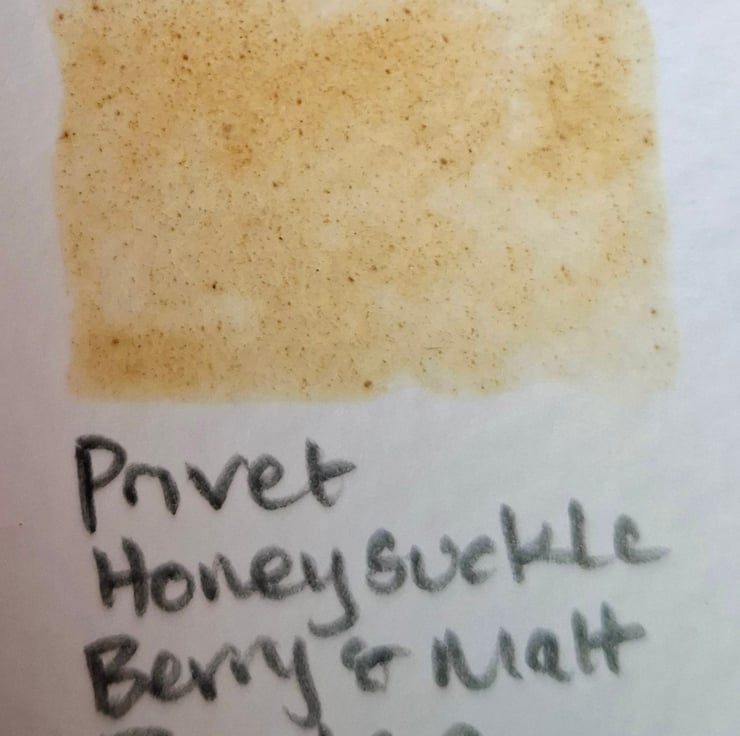 Privet
Honeysuckle
Berry & Malt